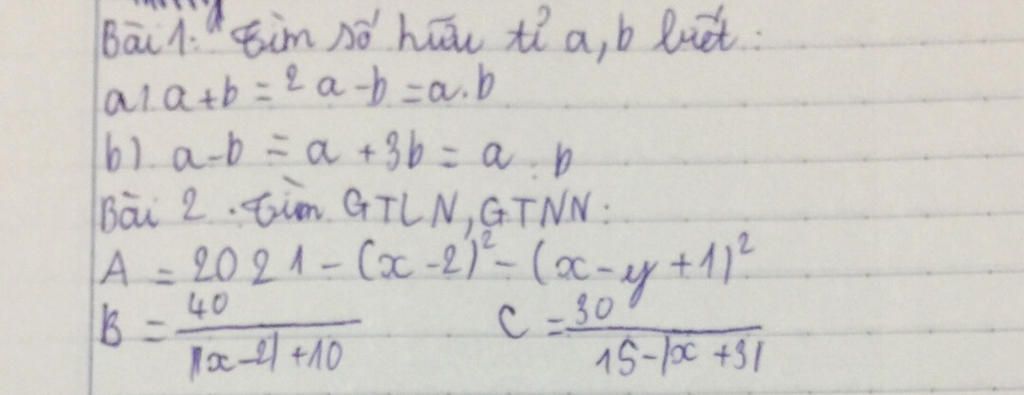 Bài 1. Tìm số hữu tỉ a, b biết:
a). a+b = 2a-b = a.b
b). a-b = a+3b = a:b
Bài 2. Tìm GTLN, GTNN:
A = 2021 - (x-2)² - (x-y+1)²
B = 40/(|x-2|+10) C = 30/(15-|x+3|)